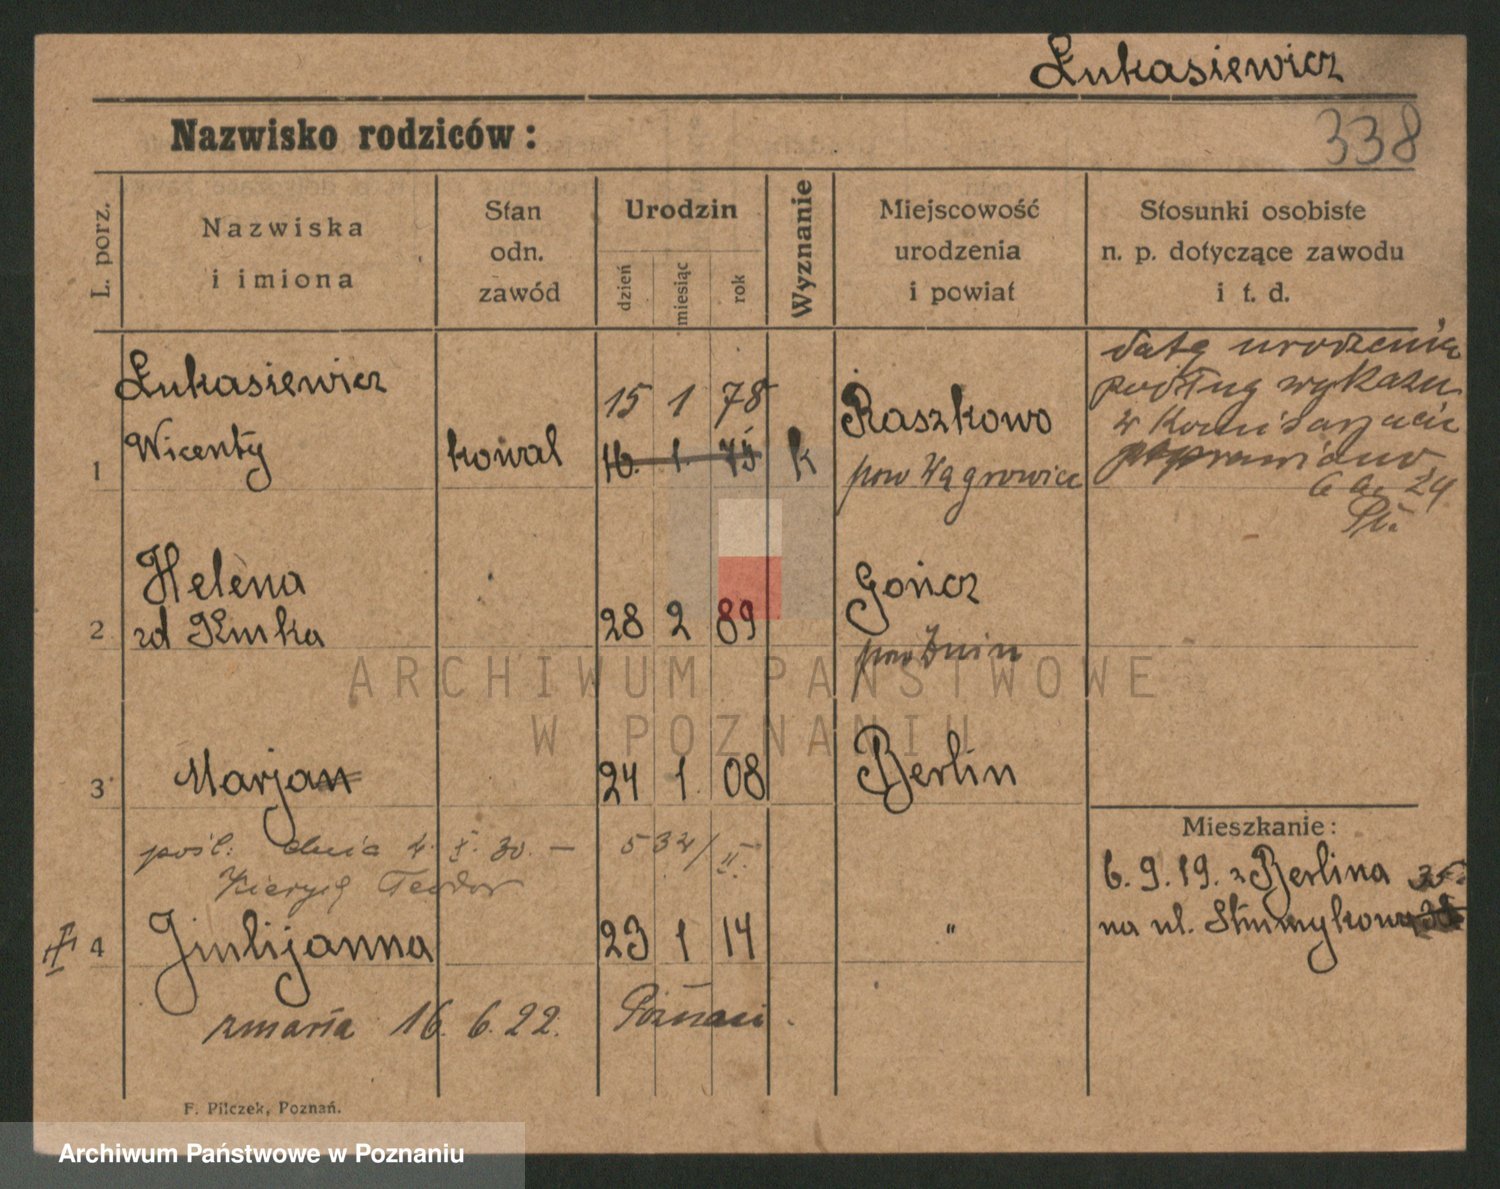 Łukasiewicz
338
Nazwisko rodziców:
L. porz.
Nazwiska
i imiona
Stan
odn.
zawód
Urodzin
dzień
miesiąc
rok
Wyznanie
Miejscowość
urodzenia
i powiat
Stosunki osobiste
n. p. dotyczące zawodu
i t. d.
1
Łukasiewicz
Wicenty
kowal
15 1 78
16. 1. 75
k
Raszkowo
pow Wągrowiec
datę urodzenia
podług wykazu
w Komisarjacie
poprawiono
24
2
Helena
zd
28 2 89
Gończ
pow Żnin
3
Marjan
24 1 08
Berlin
pośl. dnia 4. X. 30. — 532/II.
Teodor
4
Julijanna
23 1 14
"
zmarła 16. 6. 22. Poznań.
Mieszkanie:
6. 9. 19. z Berlina 35.
na ul. Strumykowa
F. Pilczek, Poznań.
ARCHIWUM PAŃSTWOWE
W POZNANIU
Archiwum Państwowe w Poznaniu